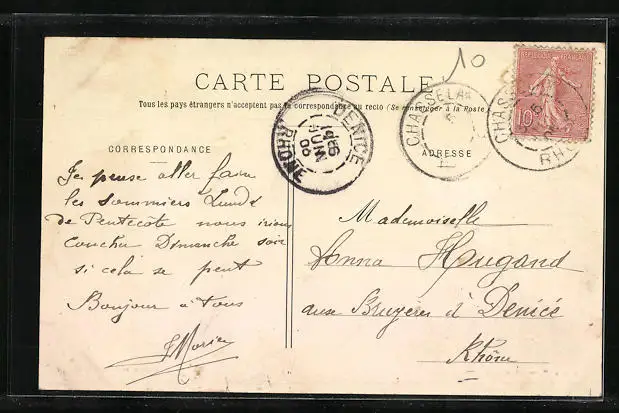 10
CARTE POSTALE
Tous les pays étrangers n'acceptent pas la correspondance au recto (Se renseigner à la Poste)
CORRESPONDANCE
ADRESSE
REPUBLIQUE FRANÇAISE
10
DENICE
RHONE
JUIN
06
CHASSELA
CHASS
RH
Je pense aller faire
les sommiers Lundi
de Pentecôte nous irions
coucher Dimanche soir
si cela se peut
Bonjour à tous
Mademoiselle
Anna Hugand
aux Bruyères à Denicé
Rhône